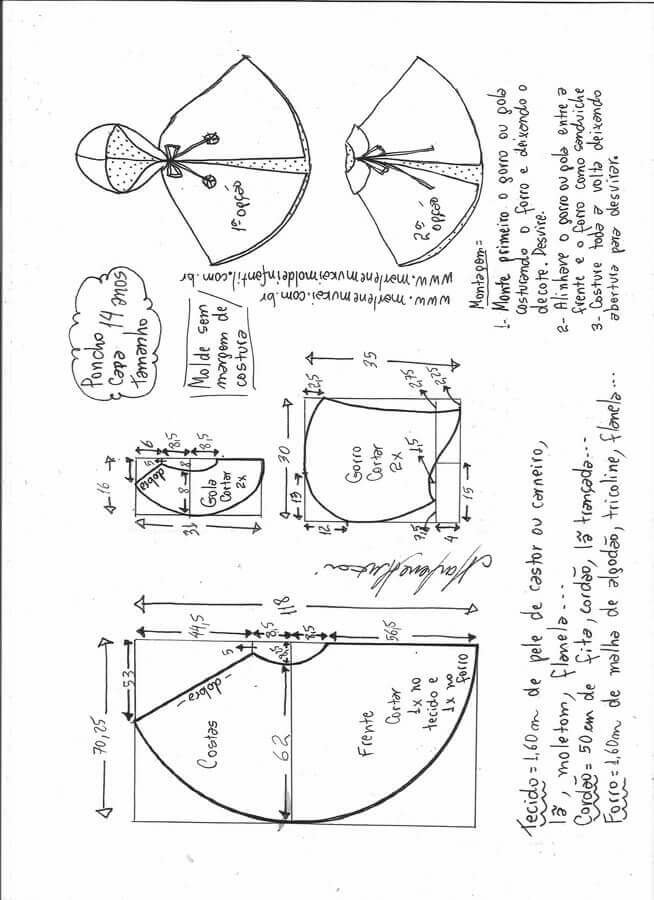 Poncho
e Capa 14 anos
Tamanho
Molde sem
margem de
costura
www.marlenemukai.com.br
www.marlenemukaimoldeinfantil.com.br
1ª opção
2ª opção
70,25
53
dobra
Costas
44,5
5
8,5
8,5
56,5
118
62
Frente
Cortar
1x no
tecido e
1x no
forro
16
31
6
5
dobra
8,5
8,5
8
8
Gola
Cortar
2x
30
13
12
2,5
35
Gorro
Cortar
2x
1,5
2,75
2,25
7,5
15
4
Tecido = 1,60 cm de pele de castor ou carneiro,
lã, moletom, flanela...
Cordão = 50 cm de fita, cordão, lã trançada...
Forro = 1,60m de malha de algodão, tricoline, flanela...
Montagem=
1- Monte primeiro o gorro ou gola
costurando o forro e deixando o
decote. Desvire.
2- Alinhave o gorro ou gola entre a
frente e o forro como sanduiche
3- Costure toda a volta deixando
abertura para desvirar.